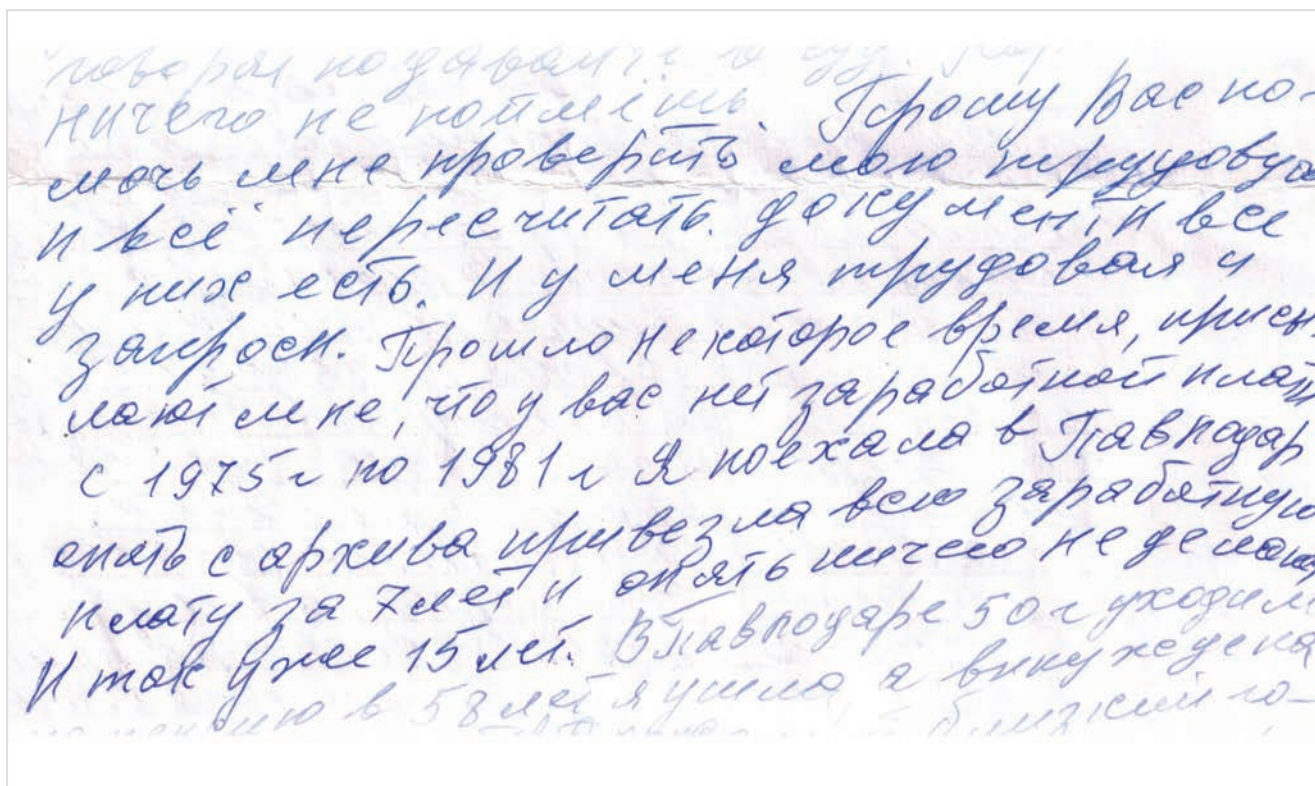 говорят подавайте в суд.
ничего не поймёшь. Прошу Вас по-
мочь мне проверить мою трудовую
и всё пересчитать. документы все
у них есть. И у меня трудовая и
запросы. Прошло некоторое время, присы-
лают мне, что у вас нет заработной платы
с 1975г по 1981г Я поехала в Павлодар
опять с архива привезла всю заработную
плату за 7 лет и опять ничего не делают
И так уже 15 лет. В Павлодаре 50 л уходили
на пенсию в 58 лет я ушла, а вынуждена
ближний го-